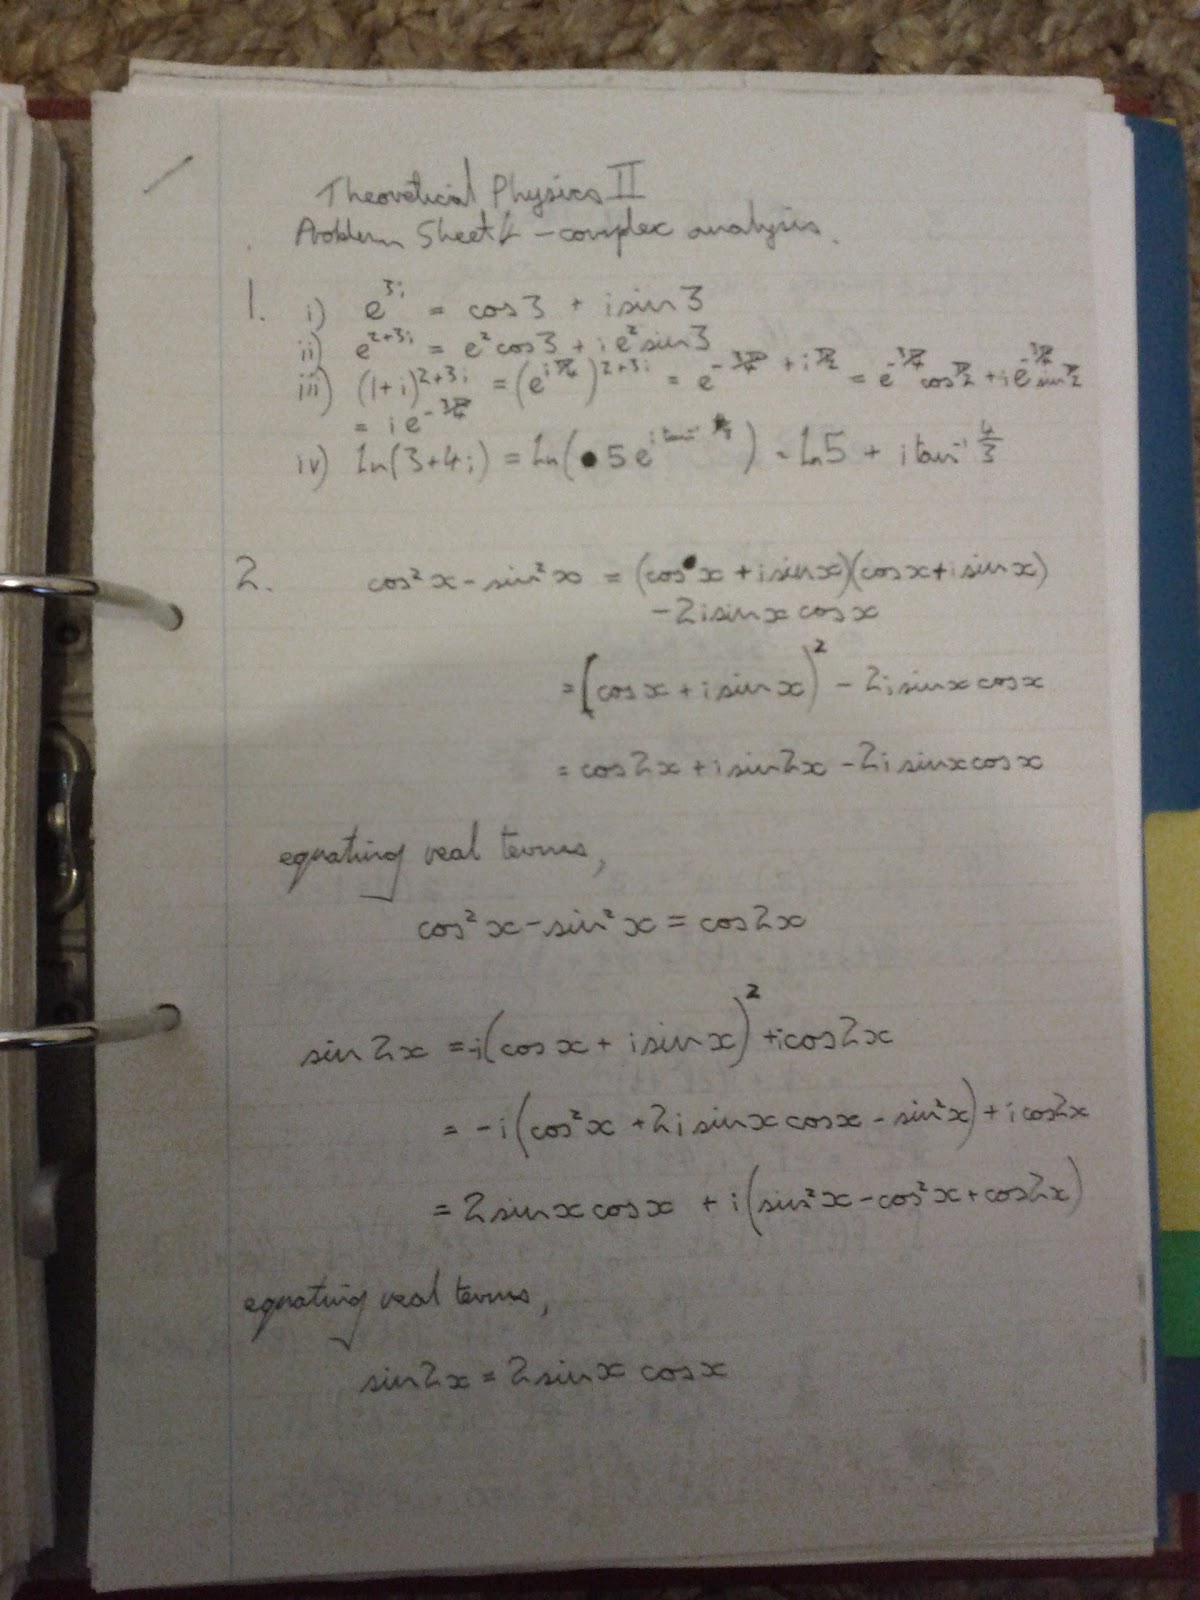 Theoretical Physics II
Problem Sheet 4 – complex analysis.
1. i) e^{3i} = cos3 + i sin3
ii) e^{2+3i} = e² cos3 + i e² sin3
iii) (1+i)^{2+3i} = (e^{iπ/4})^{2+3i} = e^{-3π/4 + iπ/2} = e^{-3π/4} cos π/2 + i e^{-3π/4} sin π/2
= i e^{-3π/4}
iv) ln(3+4i) = ln(5e^{i tan⁻¹ 4/3}) = ln5 + i tan⁻¹ 4/3
2. cos²x - sin²x = (cos x + i sin x)(cos x + i sin x)
- 2i sin x cos x
= (cos x + i sin x)² - 2i sin x cos x
= cos2x + i sin2x - 2i sin x cos x
equating real terms,
cos²x - sin²x = cos2x
sin2x = -i(cos x + i sin x)² + i cos2x
= -i(cos²x + 2i sin x cos x - sin²x) + i cos2x
= 2 sin x cos x + i(sin²x - cos²x + cos2x)
equating real terms,
sin2x = 2 sin x cos x